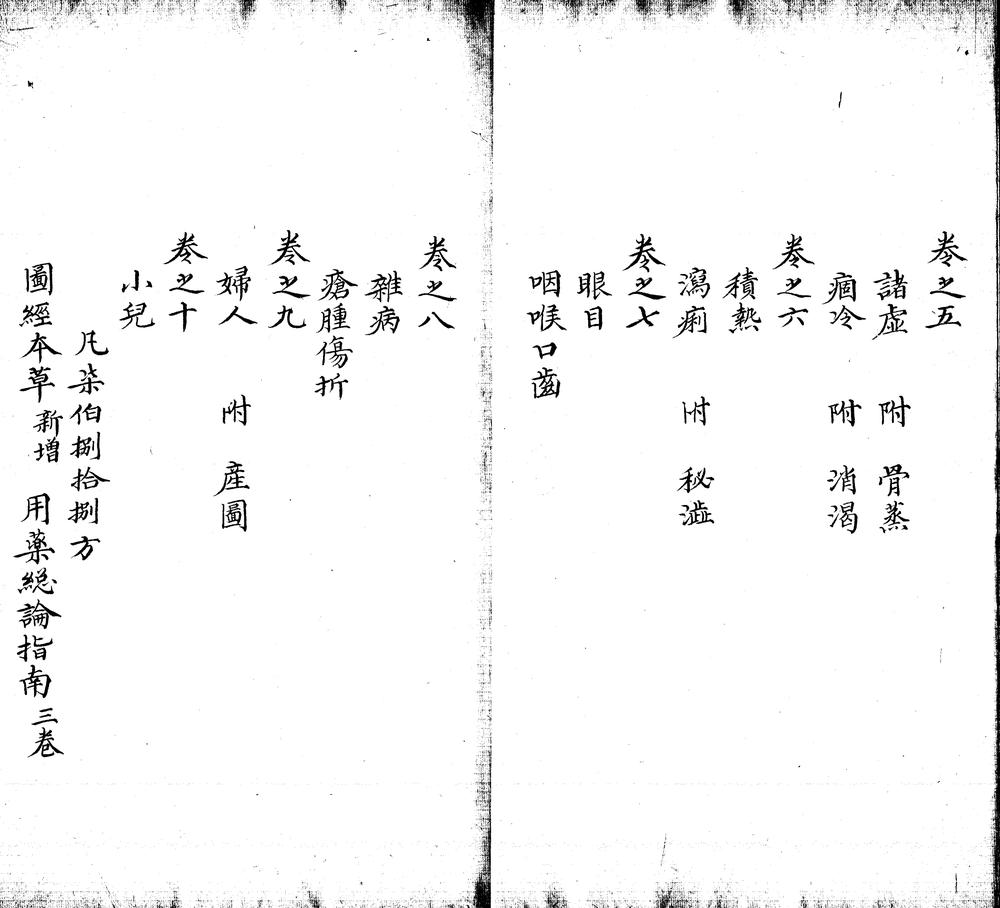 卷之五
諸虛　附　骨蒸
痼冷　附　消渴
卷之六
積熱
瀉痢　附　秘澁
卷之七
眼目
咽喉口齒
卷之八
雜病
瘡腫傷折
卷之九
婦人　附　産圖
卷之十
小兒
凡柒伯捌拾捌方
圖經本草新增　用藥総論指南三卷